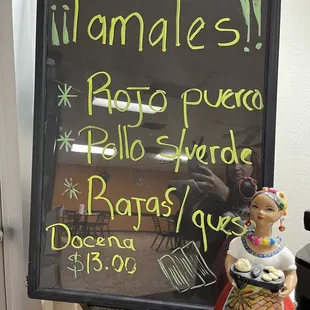 ¡¡Tamales!!
* Rojo puerco
* Pollo s/verde
* Rajas/queso
Docena
$13.00